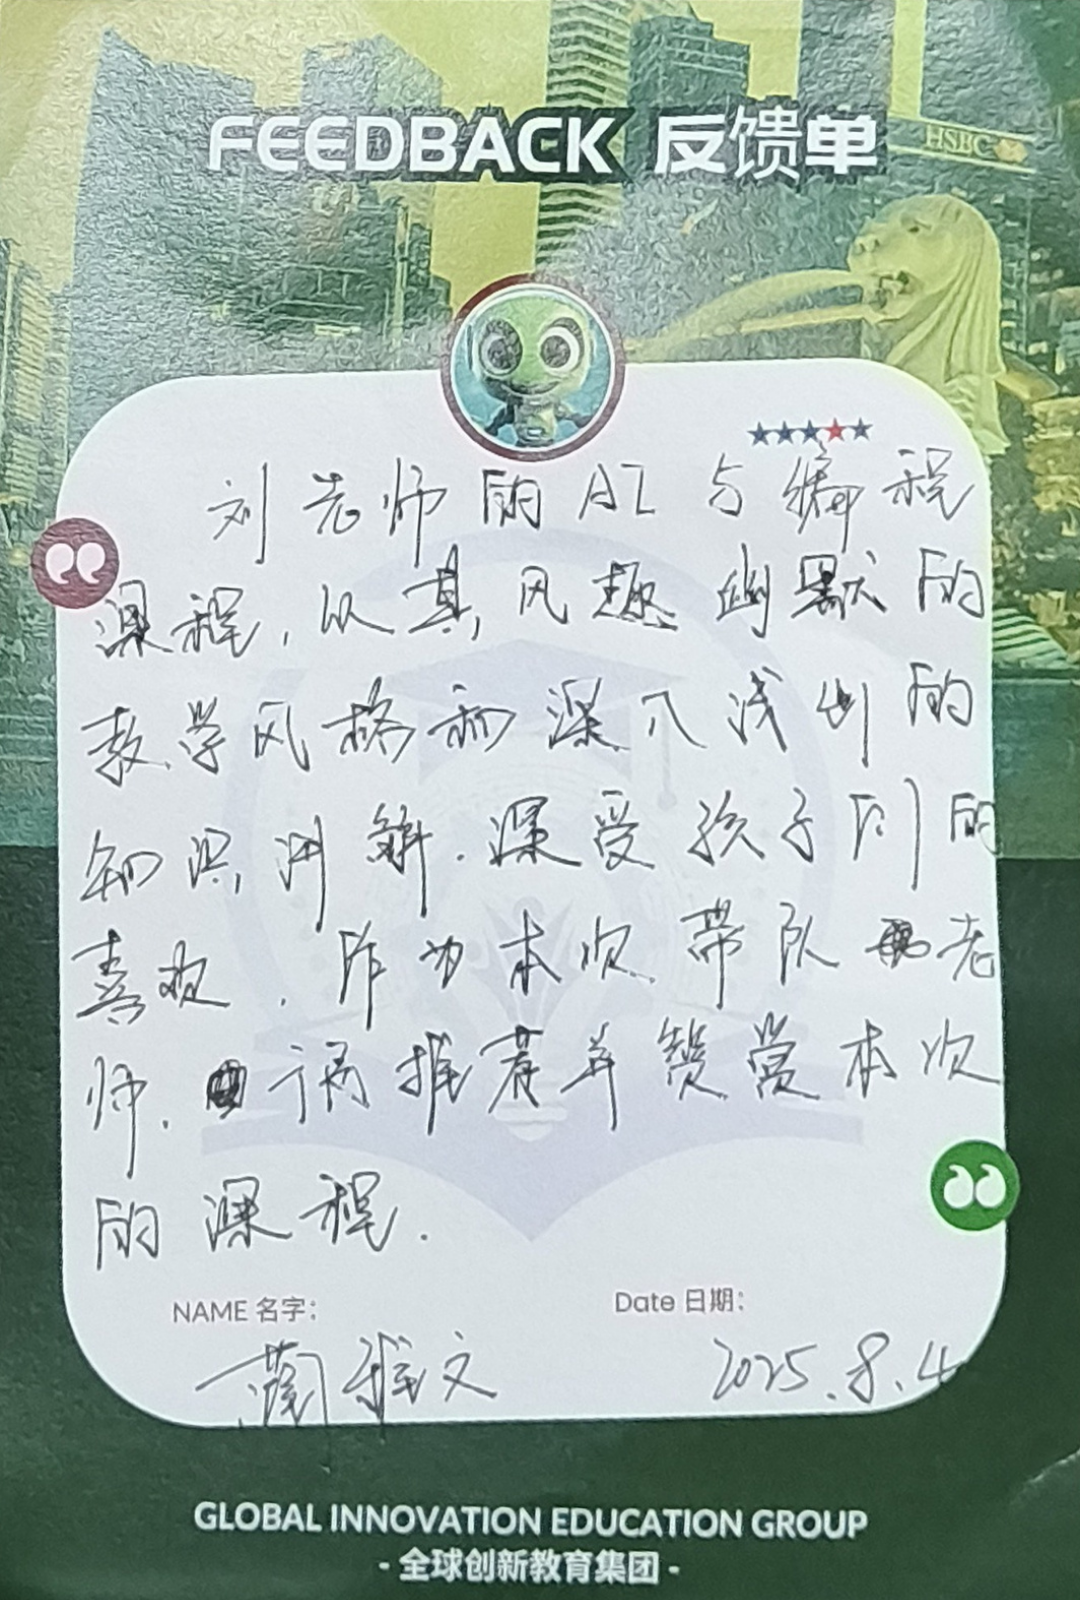 FEEDBACK 反馈单
HSBC
刘老师的AI与编程
课程，以其风趣幽默的
教学风格和深入浅出的
知识讲解，深受孩子们的
喜欢，作为本次带队老
师，诚推荐并赞赏本次
的课程.
NAME 名字：
Date 日期：
雅文
2025.8.4
GLOBAL INNOVATION EDUCATION GROUP
- 全球创新教育集团 -